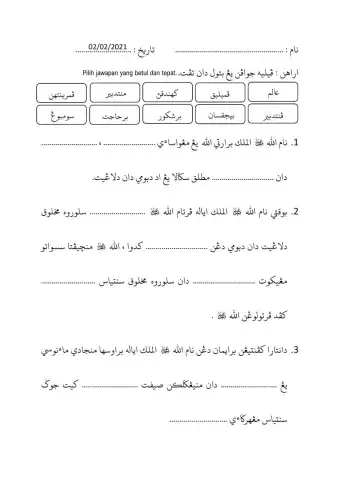 نام : ........................................ تاريخ : 02/02/2021
ارهن : ڤيليه جواڤن يڠ بتول دان تڤت. Pilih jawapan yang betul dan tepat.
عالم ڤميليق کهندقن منتدبير ڤمرينتهن
ڤنتدبير بيجقسان برشکور برحاجت سومبوڠ
1. نام الله ﷻ الملك برارتي الله يڠ مڠواساءي ........................ ، ........................
دان ........................ مطلق سݢالا يڠ اد دبومي دان دلاڠيت.
2. بوقتي نام الله ﷻ الملك اياله ڤرتام الله ﷻ ........................ سلوروه مخلوق
دلاڠيت دان دبومي دڠن ........................ کدوا ، الله ﷻ منچيڤتا سسواتو
مڠيکوت ........................ دان سلوروه مخلوق سنتياس ........................
کڤد ڤرتولوڠن الله ﷻ .
3. دانتارا کڤنتيڠن برايمان دڠن نام الله ﷻ الملك اياله براوسها منجادي ماءنوسي
يڠ ........................ دان منيڠݢلکن صيفت ........................ کيت جوݢ
سنتياس مڠهرݢاءي ........................